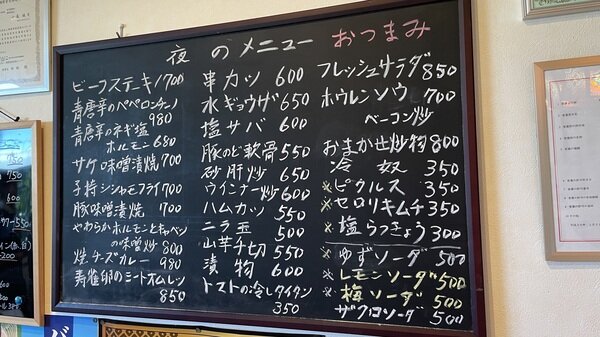 夜のメニュー おつまみ
ビーフステーキ 1700
青唐辛のペペロンチーノ
980
青唐辛のネギ塩
ホルモン 680
サケ味噌漬焼 700
子持シシャモフライ 700
豚味噌漬焼 700
やわらかホルモンとキャベツ
の味噌炒 800
焼チーズカレー 980
寿雀卵のミートオムレツ
850
串カツ 600
水ギョウザ 650
塩サバ 600
豚のど軟骨 550
砂肝炒 650
ウインナー炒 600
ハムカツ 550
ニラ玉 500
山芋千切 550
漬物 600
トマトの冷しタイタン
350
フレッシュサラダ 850
ホウレンソウ 700
ベーコン炒
おまかせ炒物 800
冷奴 350
※ピクルス 350
※セロリキムチ 350
※塩らっきょう 300
※ゆずソーダ 500
※レモンソーダ 500
※梅ソーダ 500
ザクロソーダ 500